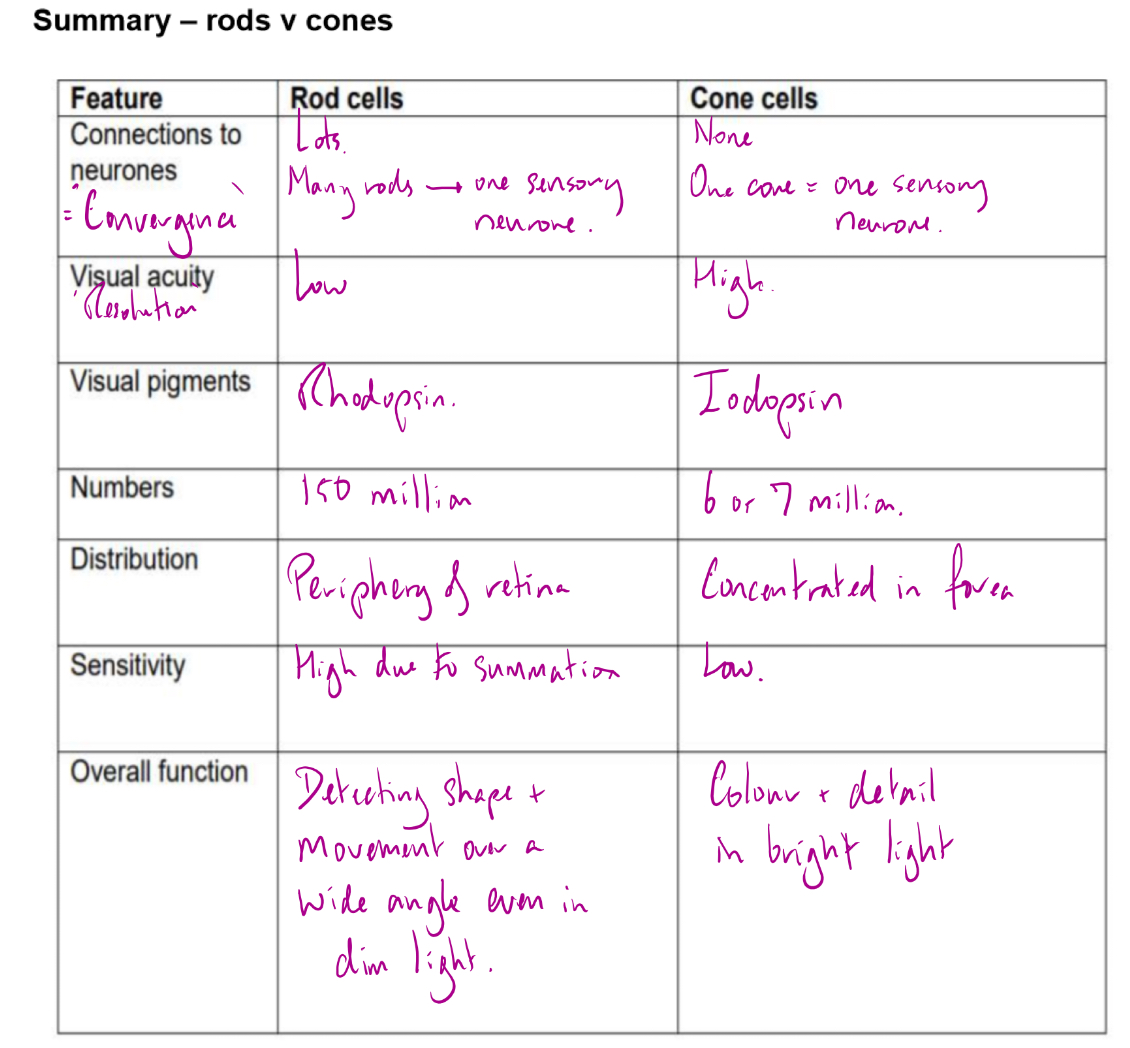 Summary – rods v cones
Feature
Rod cells
Cone cells
Connections to
neurones
= "Convergence"
Lots.
Many rods → one sensory
neurone.
None
One cone = one sensory
neurone.
Visual acuity
"Resolution
Low
High.
Visual pigments
Rhodopsin.
Iodopsin
Numbers
150 million
6 or 7 million.
Distribution
Periphery of retina
Concentrated in fovea
Sensitivity
High due to summation
Low.
Overall function
Detecting shape +
movement over a
wide angle even in
dim light.
Colour + detail
in bright light